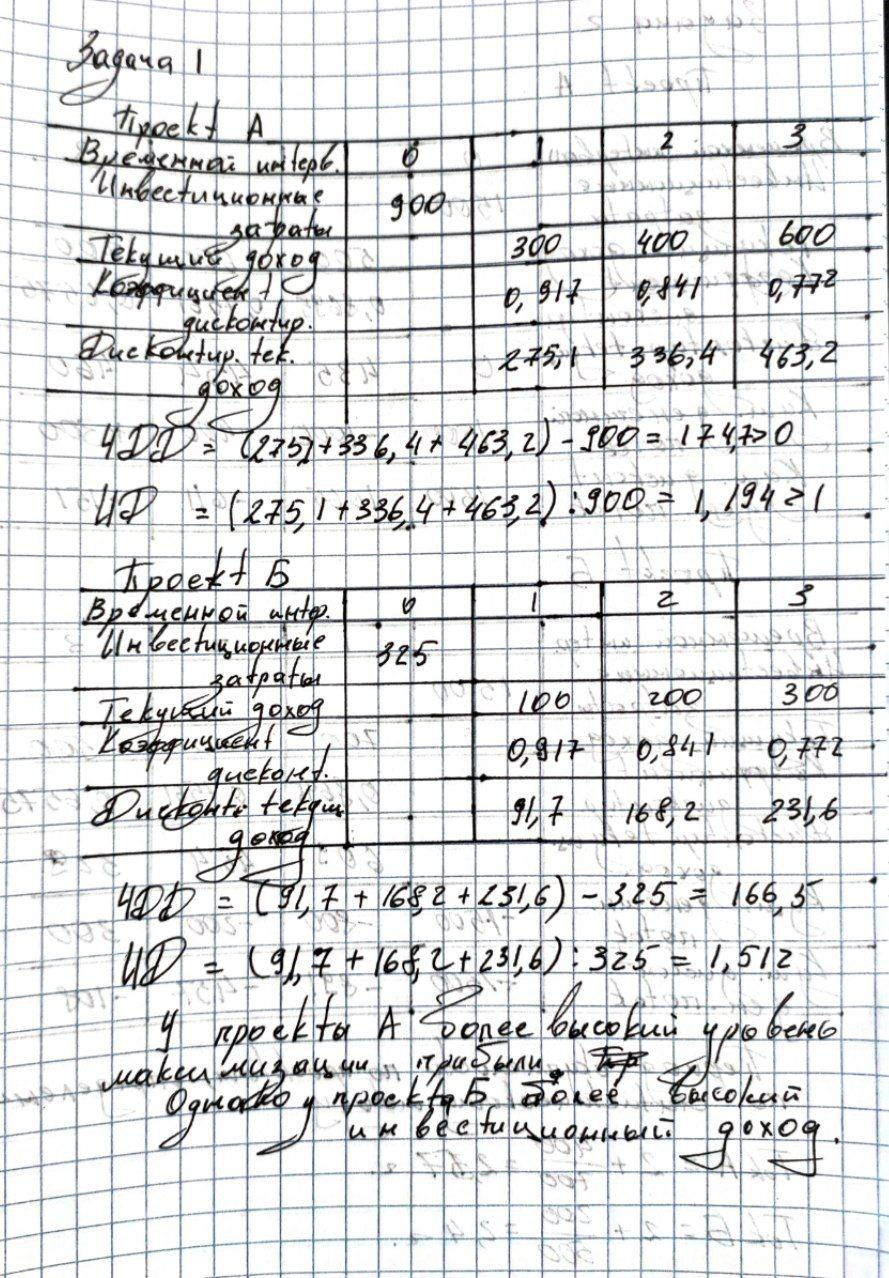 Задача 1
Проект А
Временной интерв. 0 1 2 3
Инвестиционные
затраты 900
Текущий доход 300 400 600
Коэффициент
дисконтир. 0,917 0,841 0,772
Дисконтир. тек.
доход 275,1 336,4 463,2
ЧДД = (275,1+336,4+463,2)-900 = 174,7>0
ИД = (275,1+336,4+463,2):900 = 1,194>1
Проект Б
Временной интр. 0 1 2 3
Инвестиционные
затраты 325
Текущий доход 100 200 300
Коэффициент
дисконт. 0,917 0,841 0,772
Дисконт. текущ.
доход 91,7 168,2 231,6
ЧДД = (91,7+168,2+231,6)-325 = 166,5
ИД = (91,7+168,2+231,6):325 = 1,512
У проекты А более высокий уровень
максимизации прибыли.
Однако у проекта Б более высокий
инвестиционный доход.